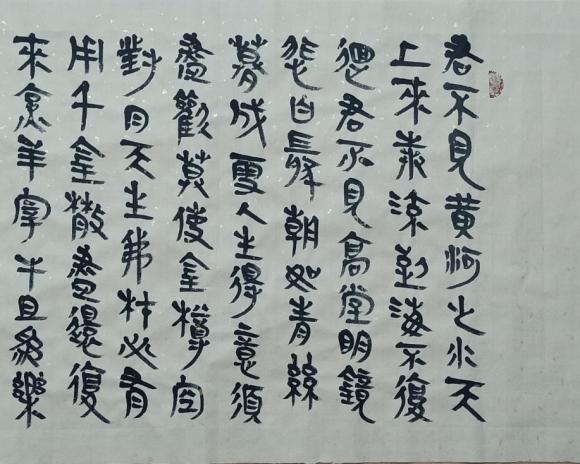 君不見黃河之水天
上來奔流到海不復
迴君不見高堂明鏡
悲白髮朝如青絲
暮成雪人生得意須
盡歡莫使金樽空
對月天生我材必有
用千金散盡還復
來烹羊宰牛且為樂